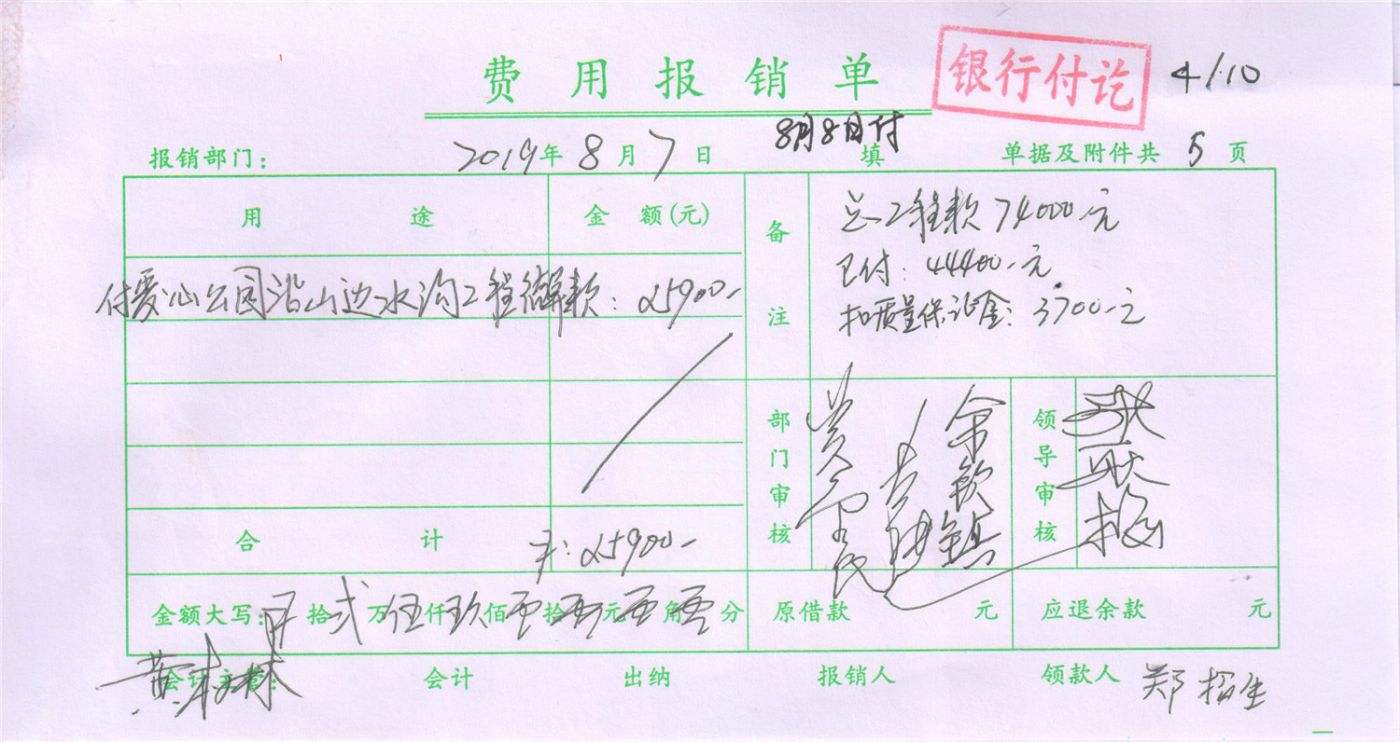 费用报销单
银行付讫
4/10
8月8日付
报销部门: 2019年8月7日 填 单据及附件共 5 页
用途 金额(元)
付爱心公园沿山边水沟工程款: 25900-
备注
总工程款74000元
已付: 44400元
扣质量保证金: 3700元
合计 ¥: 25900-
部门审核
余钦镇
领导审核
金额大写: 拾 贰万伍仟玖佰零拾零元零角零分
原借款 元 应退余款 元
会计主管: 会计 出纳 报销人 领款人 郑招生